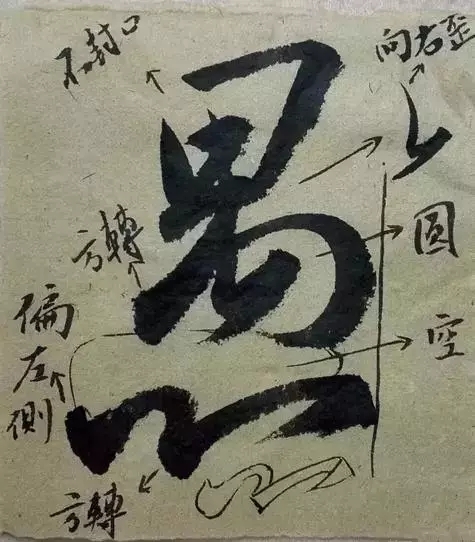 不封口
向右歪
愚
方轉
圓
空
偏左側
方轉